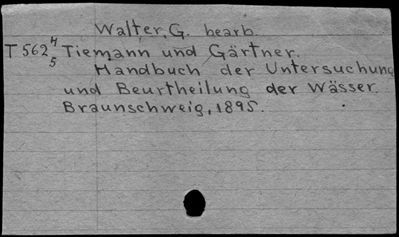 Walter, G. bearb.
T 562 4/5 Tiemann und Gärtner.
Handbuch der Untersuchung
und Beurtheilung der Wässer.
Braunschweig, 1895.